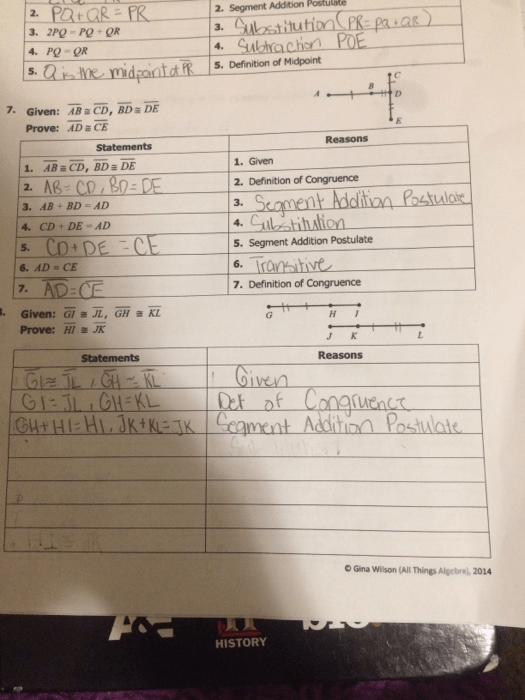 2. PQ+QR = PR 2. Segment Addition Postulate
3. 2PQ = PQ + QR 3. Substitution (PR = PQ+QR)
4. PQ = QR 4. Subtraction POE
5. Q is the midpoint of PR 5. Definition of Midpoint
A B C D E
7. Given: AB ≅ CD, BD ≅ DE
Prove: AD ≅ CE
Statements Reasons
1. AB ≅ CD, BD ≅ DE 1. Given
2. AB = CD, BD = DE 2. Definition of Congruence
3. AB + BD = AD 3. Segment Addition Postulate
4. CD + DE = AD 4. Substitution
5. CD + DE = CE 5. Segment Addition Postulate
6. AD = CE 6. Transitive
7. AD = CE 7. Definition of Congruence
Given: GI ≅ JL, GH ≅ KL G H I
Prove: HI ≅ JK J K L
Statements Reasons
GI ≅ JL, GH ≅ KL Given
GI = JL, GH = KL Def of Congruence
GH + HI = HI, JK + KL = JK Segment Addition Postulate
© Gina Wilson (All Things Algebra), 2014
HISTORY